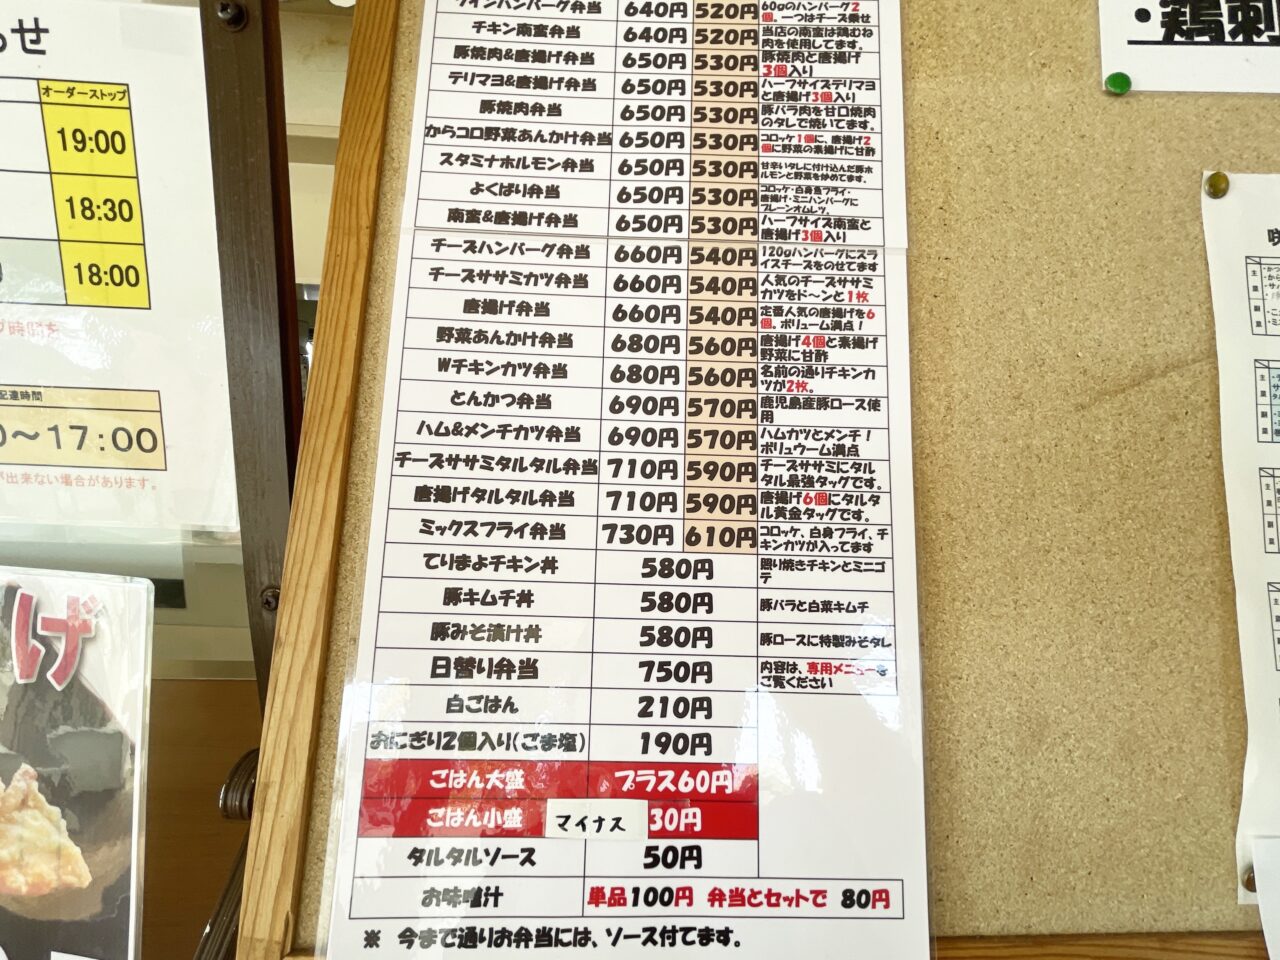 らせ
オーダーストップ
19:00
18:30
18:00
時間を
配達時間
0～17:00
が出来ない場合があります。
げ
ツインハンバーグ弁当 640円 520円 60gのハンバーグ2個。一つはチーズ乗せ
チキン南蛮弁当 640円 520円 当店の南蛮は鶏むね肉を使用してます。
豚焼肉&唐揚げ弁当 650円 530円 豚焼肉と唐揚げ3個入り
テリマヨ&唐揚げ弁当 650円 530円 ハーフサイズテリマヨと唐揚げ3個入り
豚焼肉弁当 650円 530円 豚バラ肉を甘口焼肉のタレで焼いてます。
からコロ野菜あんかけ弁当 650円 530円 コロッケ1個に、唐揚げ2個に野菜の素揚げに甘酢
スタミナホルモン弁当 650円 530円 甘辛いタレに付け込んだ豚ホルモンと野菜を炒めてます。
よくばり弁当 650円 530円 コロッケ・白身魚フライ・唐揚げ・ミニハンバーグにプレーンオムレツ。
南蛮&唐揚げ弁当 650円 530円 ハーフサイズ南蛮と唐揚げ3個入り
チーズハンバーグ弁当 660円 540円 120gハンバーグにスライスチーズをのせてます
チーズササミカツ弁当 660円 540円 人気のチーズササミカツをド～ンと1枚
唐揚げ弁当 660円 540円 定番人気の唐揚げを6個。ボリューム満点！
野菜あんかけ弁当 680円 560円 唐揚げ4個と素揚げ野菜に甘酢
Wチキンカツ弁当 680円 560円 名前の通りチキンカツが2枚。
とんかつ弁当 690円 570円 鹿児島産豚ロース使用
ハム&メンチカツ弁当 690円 570円 ハムカツとメンチ！ボリュウーム満点
チーズササミタルタル弁当 710円 590円 チーズササミにタルタル最強タッグです。
唐揚げタルタル弁当 710円 590円 唐揚げ6個にタルタル黄金タッグです。
ミックスフライ弁当 730円 610円 コロッケ、白身フライ、チキンカツが入ってます
てりまよチキン丼 580円 照り焼きチキンとミニゴテ
豚キムチ丼 580円 豚バラと白菜キムチ
豚みそ漬け丼 580円 豚ロースに特製みそタレ
日替り弁当 750円 内容は、専用メニューをご覧ください
白ごはん 210円
おにぎり2個入り(ごま塩) 190円
ごはん大盛 プラス60円
ごはん小盛 マイナス 30円
タルタルソース 50円
お味噌汁 単品100円 弁当とセットで 80円
※ 今まで通りお弁当には、ソース付てます。
・鶏刺